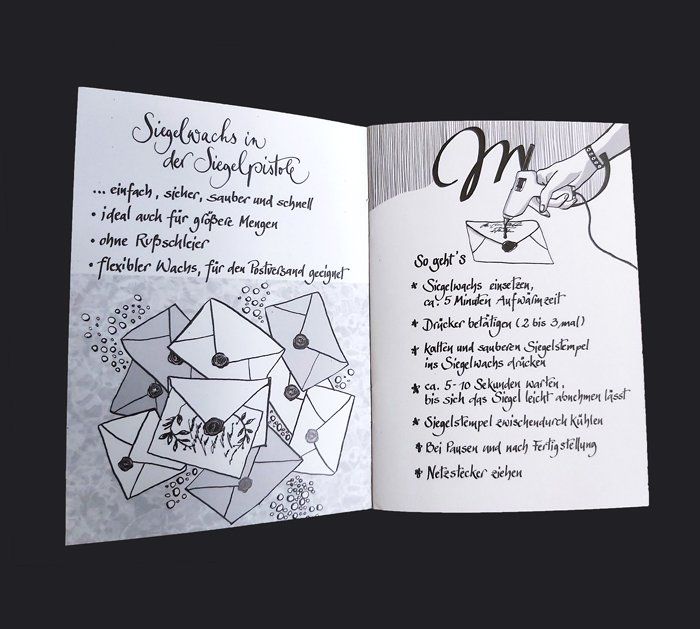 Siegelwachs in
der Siegelpistole
... einfach, sicher, sauber und schnell
• ideal auch für größere Mengen
• ohne Rußschleier
• flexibler Wachs, für den Postversand geeignet
So geht's
* Siegelwachs einsetzen,
ca. 5 Minuten Aufwärmzeit
* Drücker betätigen (2 bis 3 mal)
* Kalten und sauberen Siegelstempel
ins Siegelwachs drücken
* ca. 5-10 Sekunden warten,
bis sich das Siegel leicht abnehmen lässt
* Siegelstempel zwischendurch kühlen
* Bei Pausen und nach Fertigstellung
* Netzstecker ziehen